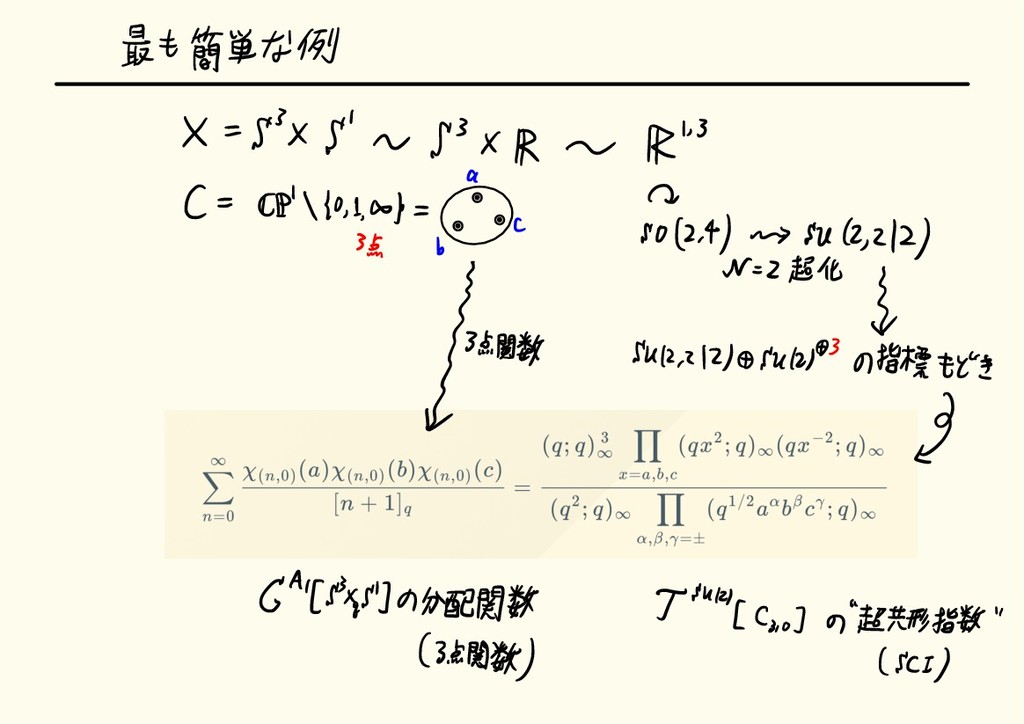 最も簡単な例
X = S³ × S¹ ~ S³ × ℝ ~ ℝ^{1,3}
C = ℂℙ¹ \ {0, 1, ∞} =
3点
a
b
c
SO(2,4) ⇝ SU(2,2|2)
N=2 超化
3点関数
SU(2,2|2) ⊕ SU(2)^{⊕3} の指標もどき
\sum_{n=0}^{∞} \frac{χ_{(n,0)}(a)χ_{(n,0)}(b)χ_{(n,0)}(c)}{[n+1]_q} = \frac{(q;q)_∞^3 \prod_{x=a,b,c} (qx^2;q)_∞(qx^{-2};q)_∞}{(q^2;q)_∞ \prod_{α,β,γ=±} (q^{1/2}a^α b^β c^γ;q)_∞}
の分配関数
(3点関数)
T^{SU(2)}[C_{3,0}] の "超共形指数"
(SCI)